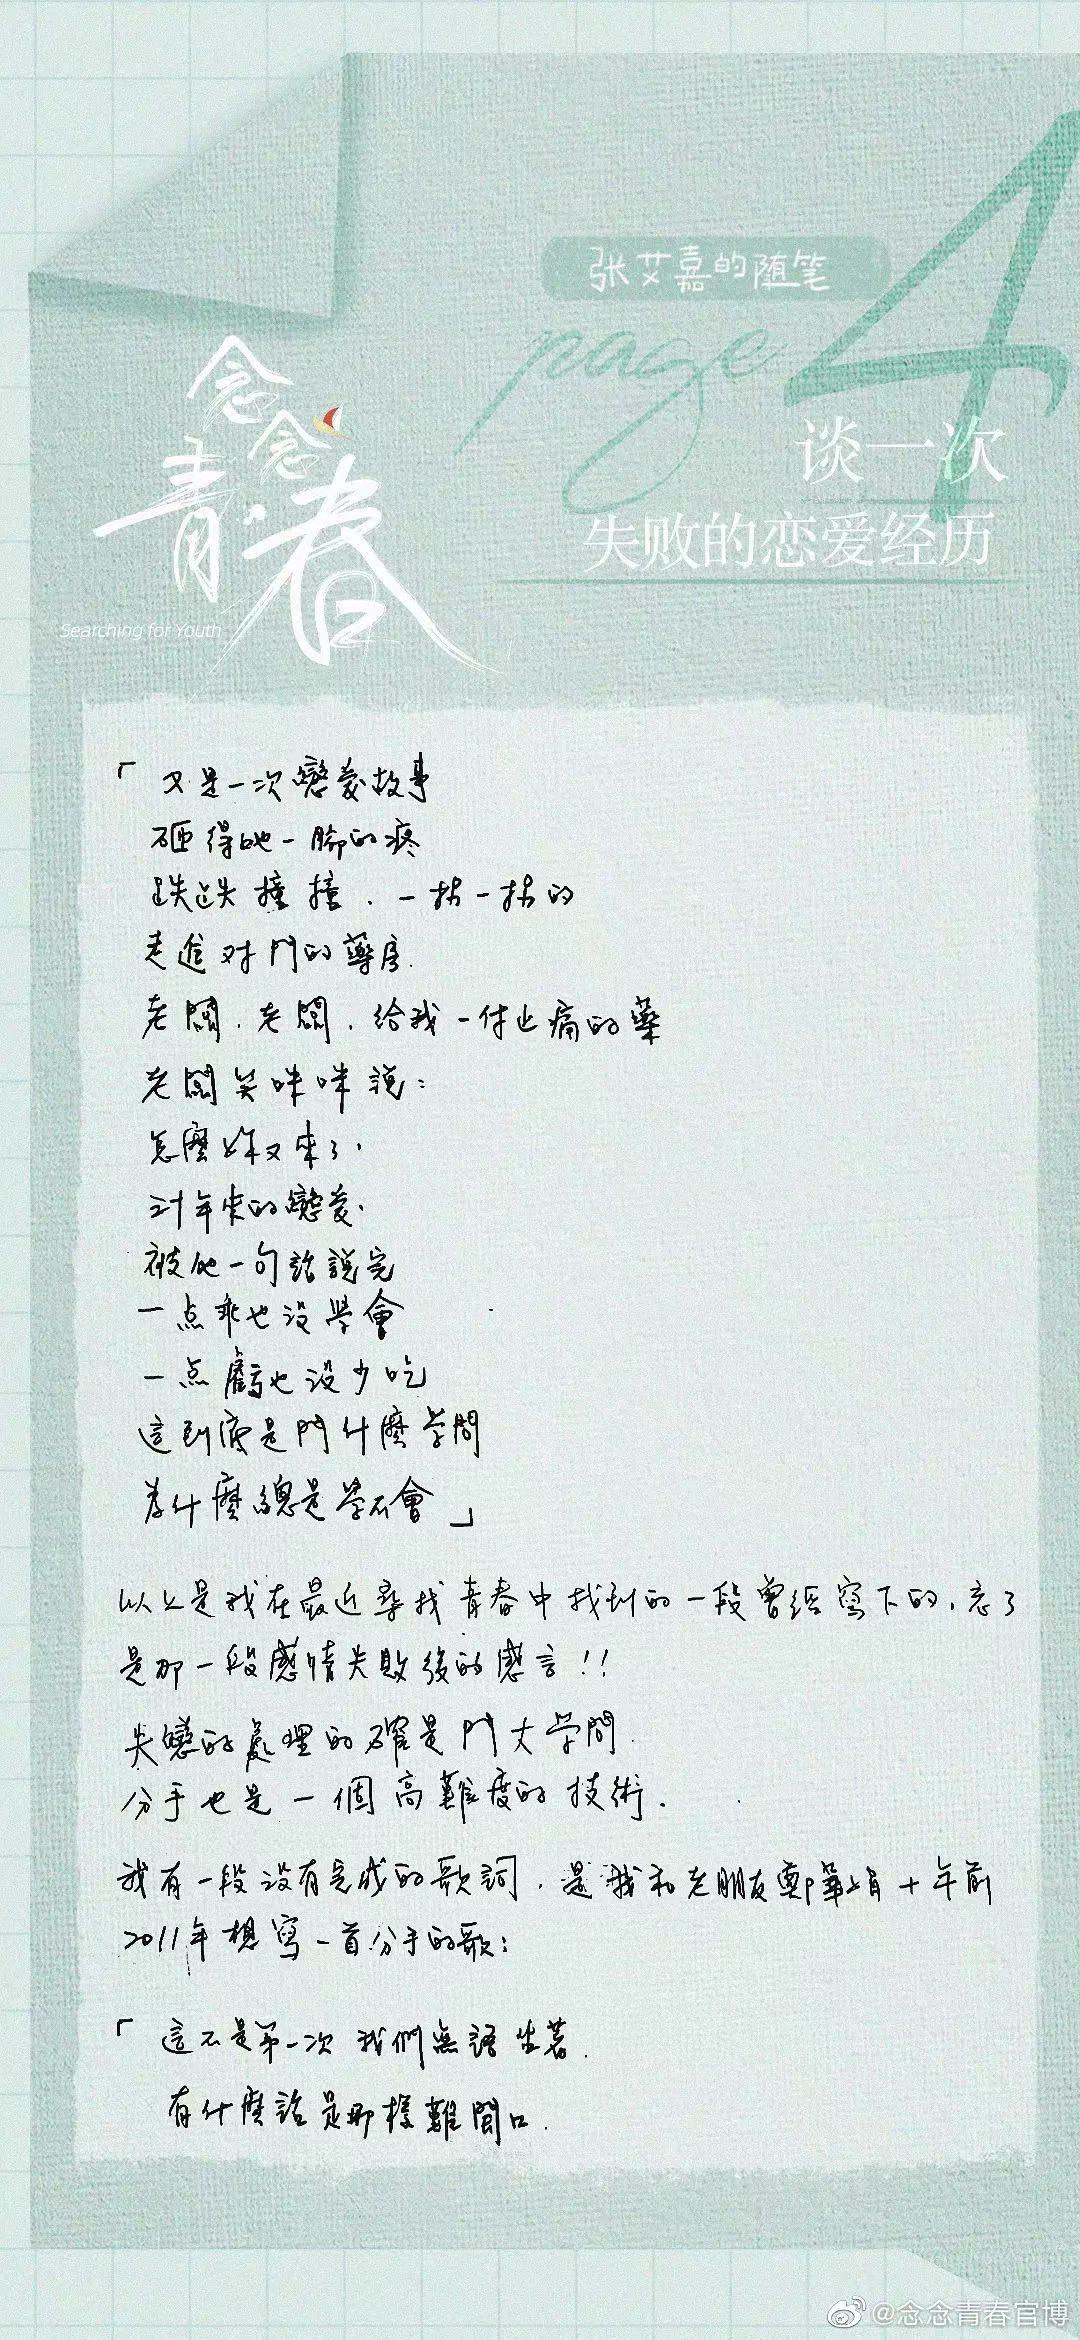 张艾嘉的随笔
page 4
念念青春
Searching for Youth
谈一次
失败的恋爱经历
「又是一次戀愛故事
砸得她一腳的疼
跌跌撞撞.一拐一拐的
走進对門的藥房.
老闆.老闆.給我一付止痛的藥
老闆笑咪咪說：
怎麼妳又來了.
卅年來的戀愛.
被他一句話說完
一点乖也沒學會
一点虧也沒少吃
這到底是門什麼学問
為什麼總是學不會」
以上是我在最近尋找青春中找到的一段曾經寫下的.忘了
是那一段感情失敗後的感言!!
失戀的處理的確是門大学問.
分手也是一個高難度的技術.
我有一段沒有完成的歌詞.是我和老朋友鄭華娟十年前
2011年想寫一首分手的歌：
「這不是第一次 我們無語坐著.
有什麼話是那樣難開口.
@念念青春官博